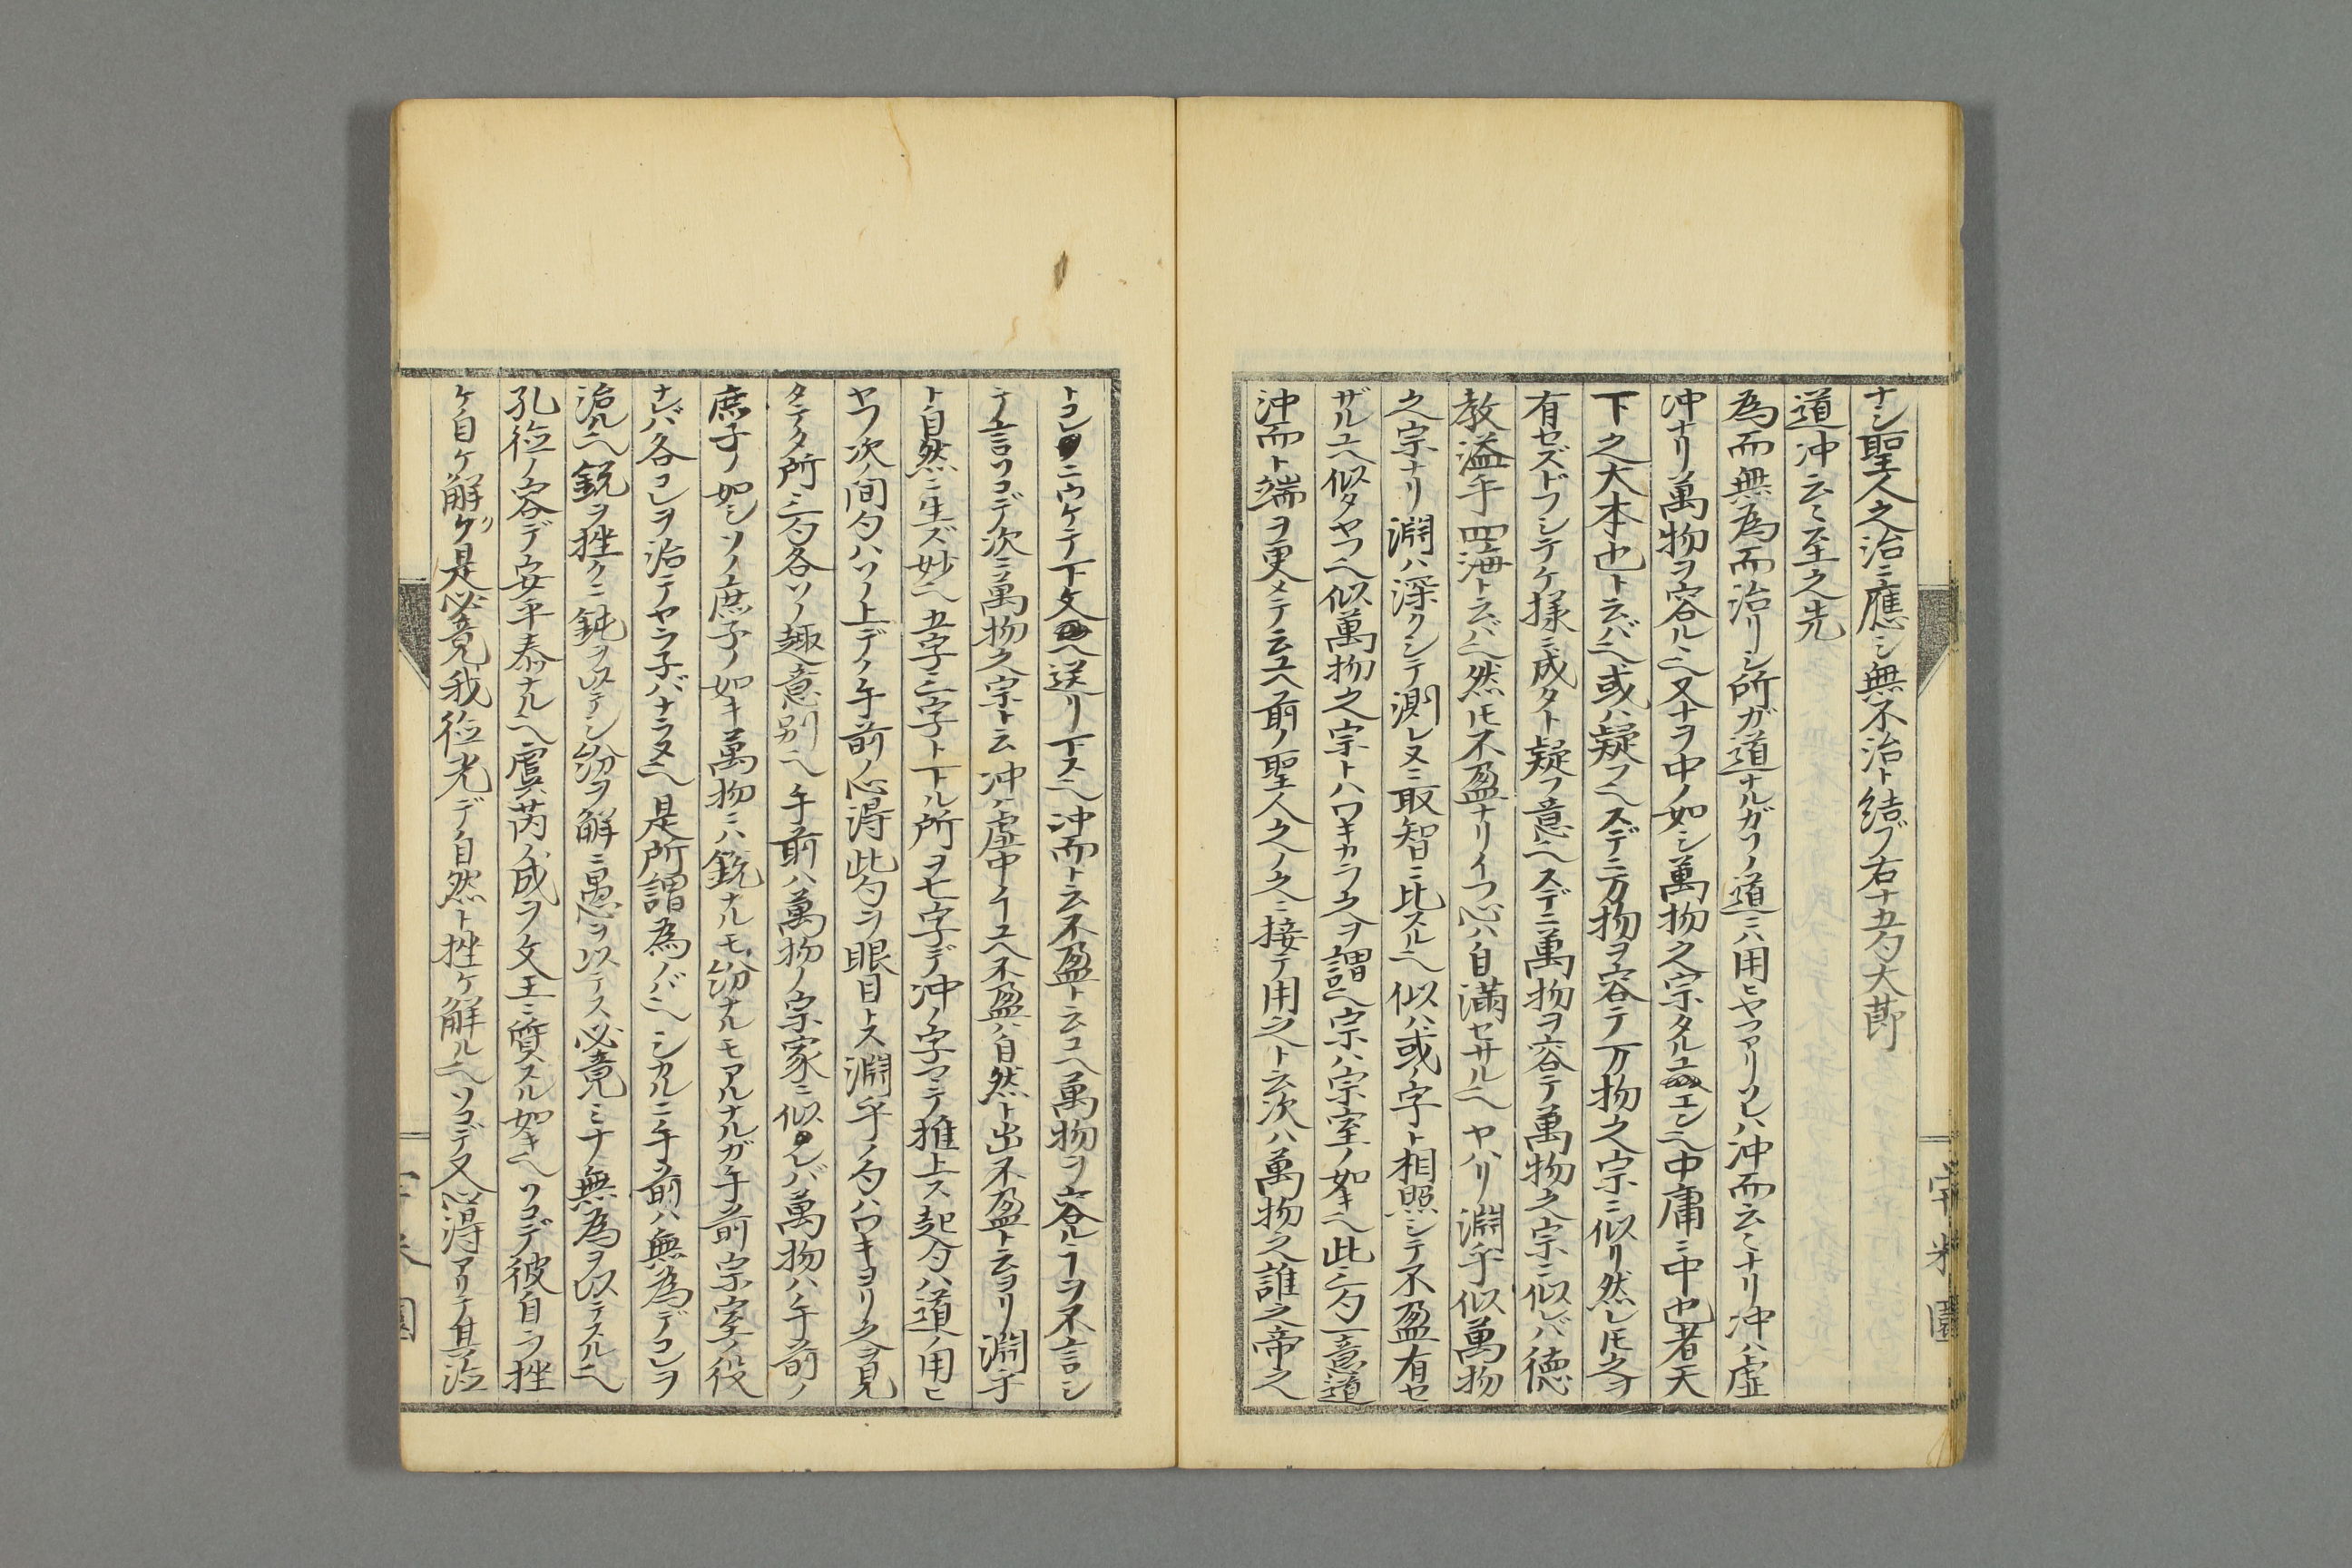 ナシ聖人之治ニ應シ無不治ト結ブ右十五勺大節
道冲云々至之先
為而無為而治リシ所ガ道ナルガソノ道ニハ用ヒヤフアリソレハ冲而云々ナリ冲ハ虚
冲ナリ萬物ヲ容ルヽ又ナヲ中ノ如シ萬物之宗タルユエンヽ中庸ニ中也者天
下之大本也ト云バヽ或ハ疑フヽスデニ万物ヲ容テ万物之宗ニ似リ然レ𪜈之ヲ
有セズドフシテケ様ニ成タト疑フ意ヽスデニ萬物ヲ容テ萬物之宗ニ似レバ德
教溢乎四海ト云バヽ然𪜈不盈ナリイツ心ハ自満セサルヽヤハリ淵乎似萬物
之宗ナリ淵ハ深クシテ測レヌニ取智ニ比スルヽ似ハ或ノ字ト相照シテ不盈有セ
ザルユヘ似タヤフヽ似萬物之宗トハワキカラ之ヲ謂ヽ宗ハ宗室ノ如キヽ此二勺一意道
冲而ト端ヲ更メテ云ユヘ前ノ聖人之ノ之ニ接テ用之ト云次ハ萬物之誰之帝之
トコレニウケテ下文ヘ送リ下スヽ冲而ト云不盈ト云ユヘ萬物ヲ容ルヽヲ不言シ
テ言ソコデ次ニ萬物之宗ト云冲ケ虚中ノユヘ不盈ハ自然ト出不盈ト云ヨリ淵乎
ト自然ニ生ズ妙ヽ五字二字ト下ル所ヲ七字デ冲ノ字マテ推上ス起勺ハ道ノ用ヒ
ヤフ次ノ間勺ハソノ上デノ午前ノ心得此勺ヲ眼目トス淵乎ノ勺ハワキヨリ之ヲ見
タテタ所三勺各ソノ趣意別ヽ午前ハ萬物ノ宗家ニ似レバ萬物ハ午前ノ
庶子ノ如シソノ庶子ノ如キ萬物ニハ鋭ナルモ紛ナルモアルナルガ午前宗室ノ役
ナレバ各コレヲ治テヤラ子バナラヌヽ是所謂為ノバヽシカルニ午前ハ無為デコレヲ
治ルヽ鋭ヲ挫クニ鈍ヲ以テシ紛ヲ解ニ愚ヲ以テス必竟ミナ無為ヲ以テスルヽ
孔德ノ容デ安平泰ナルヽ虞芮ノ成ヲ文王ニ質スル如キヽソコデ彼自ラ挫
ケ自ケ解ケリ是必竟我德光デ自然ト挫ケ解ルヽソコデ又心得アリテ其治